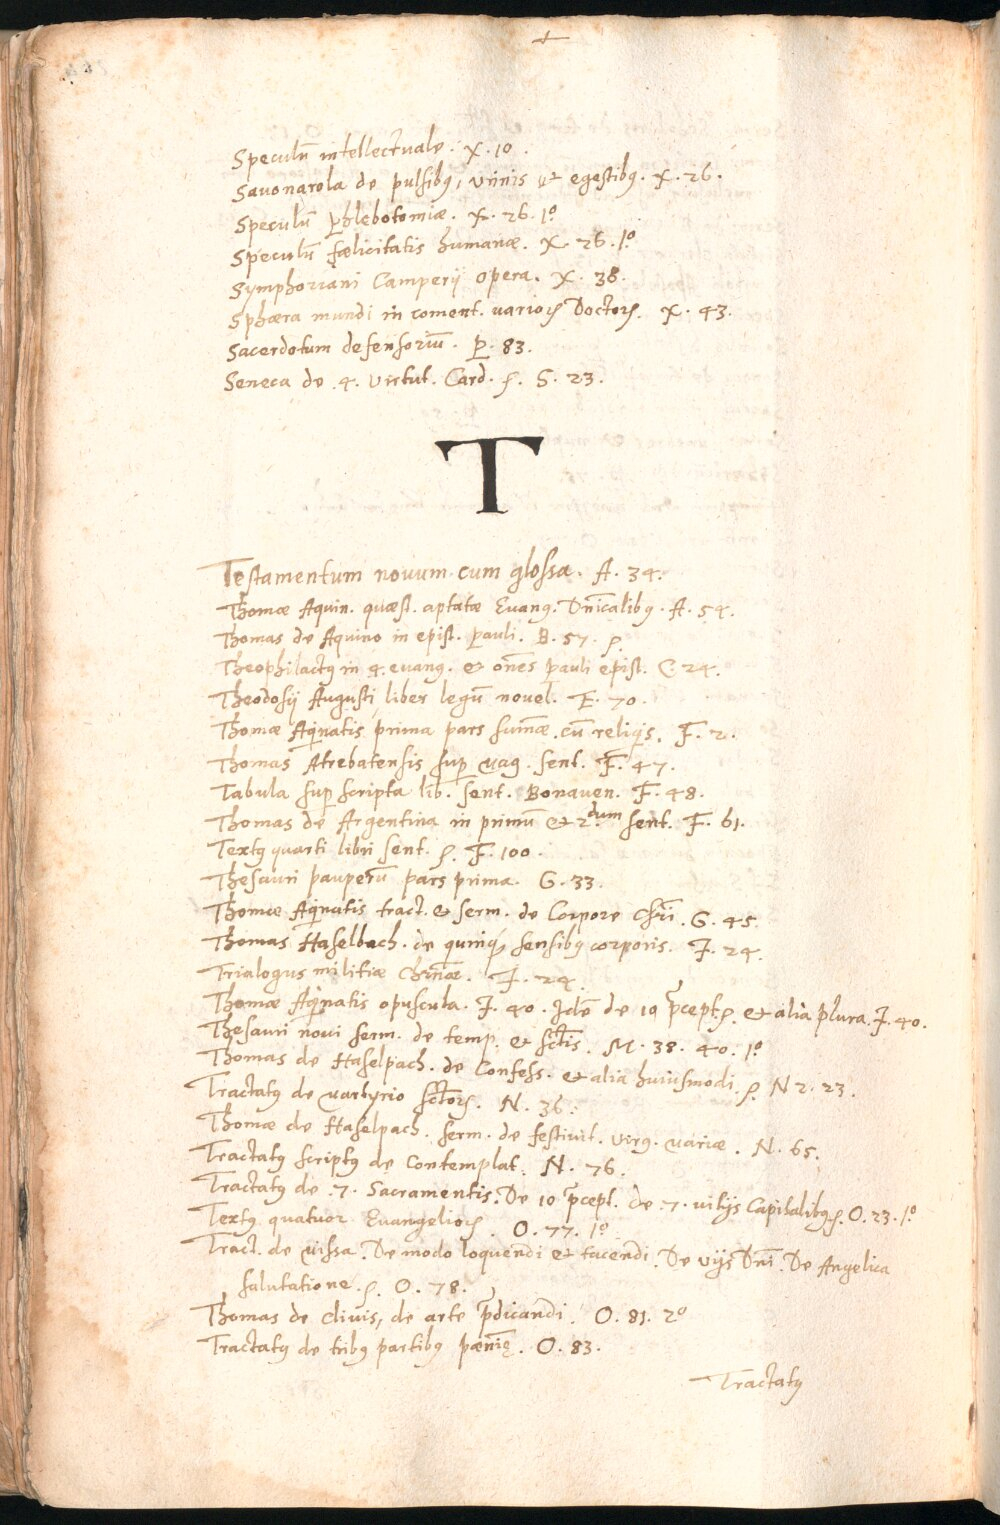 +
Speculū intellectuale. X. 10.
Sauonarola de pulsibꝰ, vrinis et egestibꝰ. X. 26.
Speculū phlebotomiæ. X. 26. 1º
Speculū fælicitatis humanæ. X. 26. 1º
Symphoriani Camperij opera. X. 38.
Sphæra mundi in coment. varioꝝ Doctoꝝ. X. 43.
Sacerdotum defensoriū. P. 83.
Seneca de 4. virtut. Card. ꝭ. S. 23.
T
Testamentum nouum cum glossa. A. 34.
Thomæ Aquin. quæst. aptatæ Euang. Dnīcalibꝰ. A. 54.
Thomas de Aquino in epist. pauli. B. 57. ꝭ.
Theophilactꝰ in 4. euang. et oēs pauli epist. C. 24.
Theodosij Augusti, liber legū nouel. E. 70.
Thomæ Aqīnatis prima pars sum̄æ. cū reliqis. F. 2.
Thomas Atrebatensis sup mag. sent. F. 47.
Tabula sup scripta lib. sent. Bonauen. F. 48.
Thomas de Argentina in primū et 2.dum sent. F. 61.
Textꝰ quarti libri sent. ꝭ. F. 100.
Thesauri pauperū pars prima. G. 33.
Thomæ Aqīnatis tract. et serm. de Corpore Chrī. G. 45.
Thomas Haselbach. de quinqꝫ sensibꝰ corporis. J. 24.
Trialogus militiæ Chrīnæ. J. 24.
Thomæ Aqīnatis opuscula. J. 40. Idē de 10 p̄ceptꝭ. et alia plura. J. 40.
Thesauri noui serm. de temp. et sctīs. M. 38. 40. 1º
Thomas de Haselpach. de Confess. et alia huiusmodi. ꝭ. N 2. 23.
Tractatꝰ de martyrio sctoꝝ. N. 36.
Thomæ de Haselpach. serm. de festiuit. virg. mariæ. N. 65.
Tractatꝰ scriptꝰ de Contemplat. N. 76.
Tractatꝰ de .7. Sacramentis. De 10 p̄cept. de .7. vitijs Capitalibꝰ ꝭ. O. 23. 1º
Textꝰ quatuor Euangelioꝝ. O. 77. 1º
Tract. de missa. De modo loquendi et tacendi. De vijs Dnī. De Angelica
salutatione. ꝭ. O. 78.
Thomas de Cliuis, de arte p̄dicandi. O. 81. 2º
Tractatꝰ de tribꝰ partibꝰ pænīę. O. 83.
Tractatꝰ